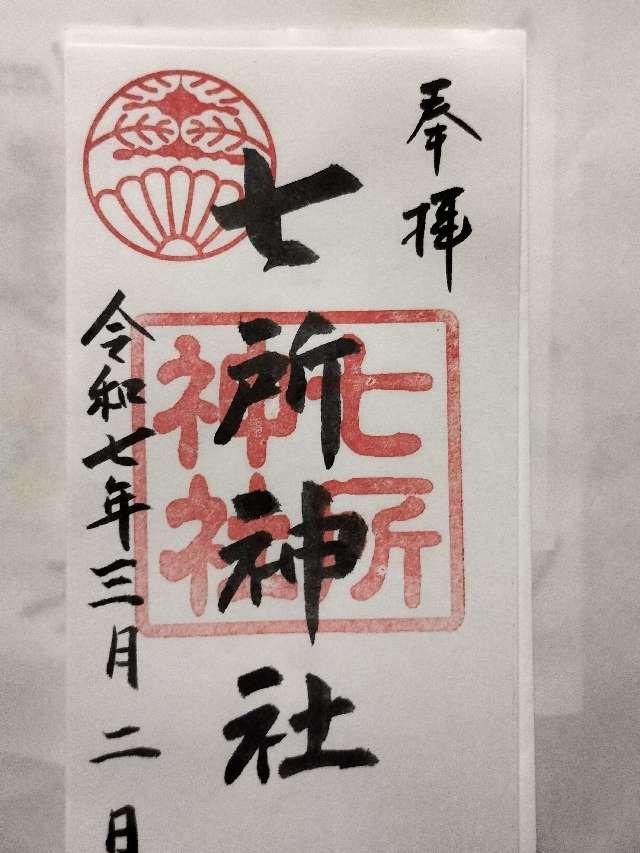 奉拝
七所神社
七所
神社
令和七年三月二日